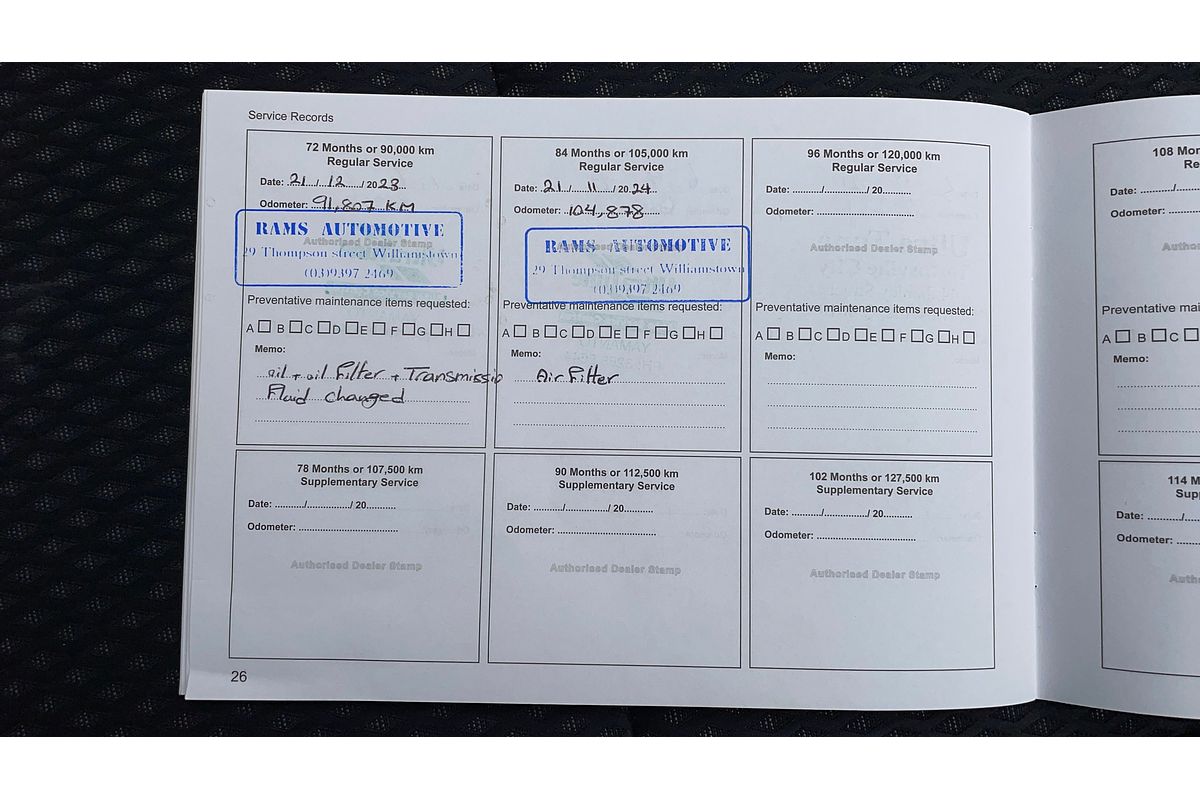 Service Records
72 Months or 90,000 km
Regular Service
Date: 21/12/2023
Odometer: 91,807 KM
Authorised Dealer Stamp
RAMS AUTOMOTIVE
29 Thompson street Williamstown
(03)9397 2469
Preventative maintenance items requested:
A B C D E F G H
Memo:
oil + oil Filter + Transmissio
Fluid changed
84 Months or 105,000 km
Regular Service
Date: 21/11/2024
Odometer: 104,878
RAMS AUTOMOTIVE
29 Thompson street Williamstown
(03)9397 2469
Preventative maintenance items requested:
A B C D E F G H
Memo:
Air Filter
96 Months or 120,000 km
Regular Service
Date: ........../.............../ 20..........
Odometer: ..................................
Authorised Dealer Stamp
Preventative maintenance items requested:
A B C D E F G H
Memo:
108 Mor
Re
Date: ........../......
Odometer: ..........
Autho
Preventative mai
A B C
Memo:
78 Months or 107,500 km
Supplementary Service
Date: ........../.............../ 20..........
Odometer: ..................................
Authorised Dealer Stamp
90 Months or 112,500 km
Supplementary Service
Date: ........../.............../ 20..........
Odometer: ..................................
Authorised Dealer Stamp
102 Months or 127,500 km
Supplementary Service
Date: ........../.............../ 20..........
Odometer: ..................................
Authorised Dealer Stamp
114 M
Supp
Date: ........../......
Odometer: ..........
Auth
26